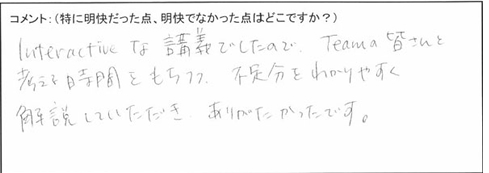 コメント：（特に明快だった点、明快でなかった点はどこですか？）
Interactiveな講義でしたので、Teamの皆さんと
考える時間をもちつつ、不足分をわかりやすく
解説していただき、ありがたかったです。